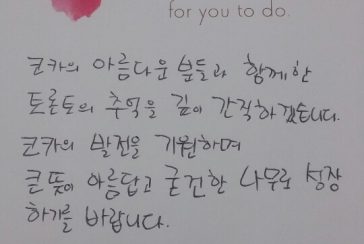 for you to do.
코카의 아름다운 분들과 함께한
토론토의 추억을 깊이 간직하겠습니다.
코카의 발전을 기원하며
큰 뜻이 아름답고 굳건한 나무로 성장
하기를 바랍니다.